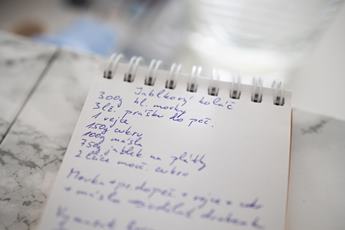 Jablkový koláč
300g hl. mouky
3 lž. prášku do peč.
1 vejce
150g cukru
100g másla
750g jablek na plátky
2 lžíce moč. cukru
Mouka + pr. do peč + vejce + cukr
+ máslo